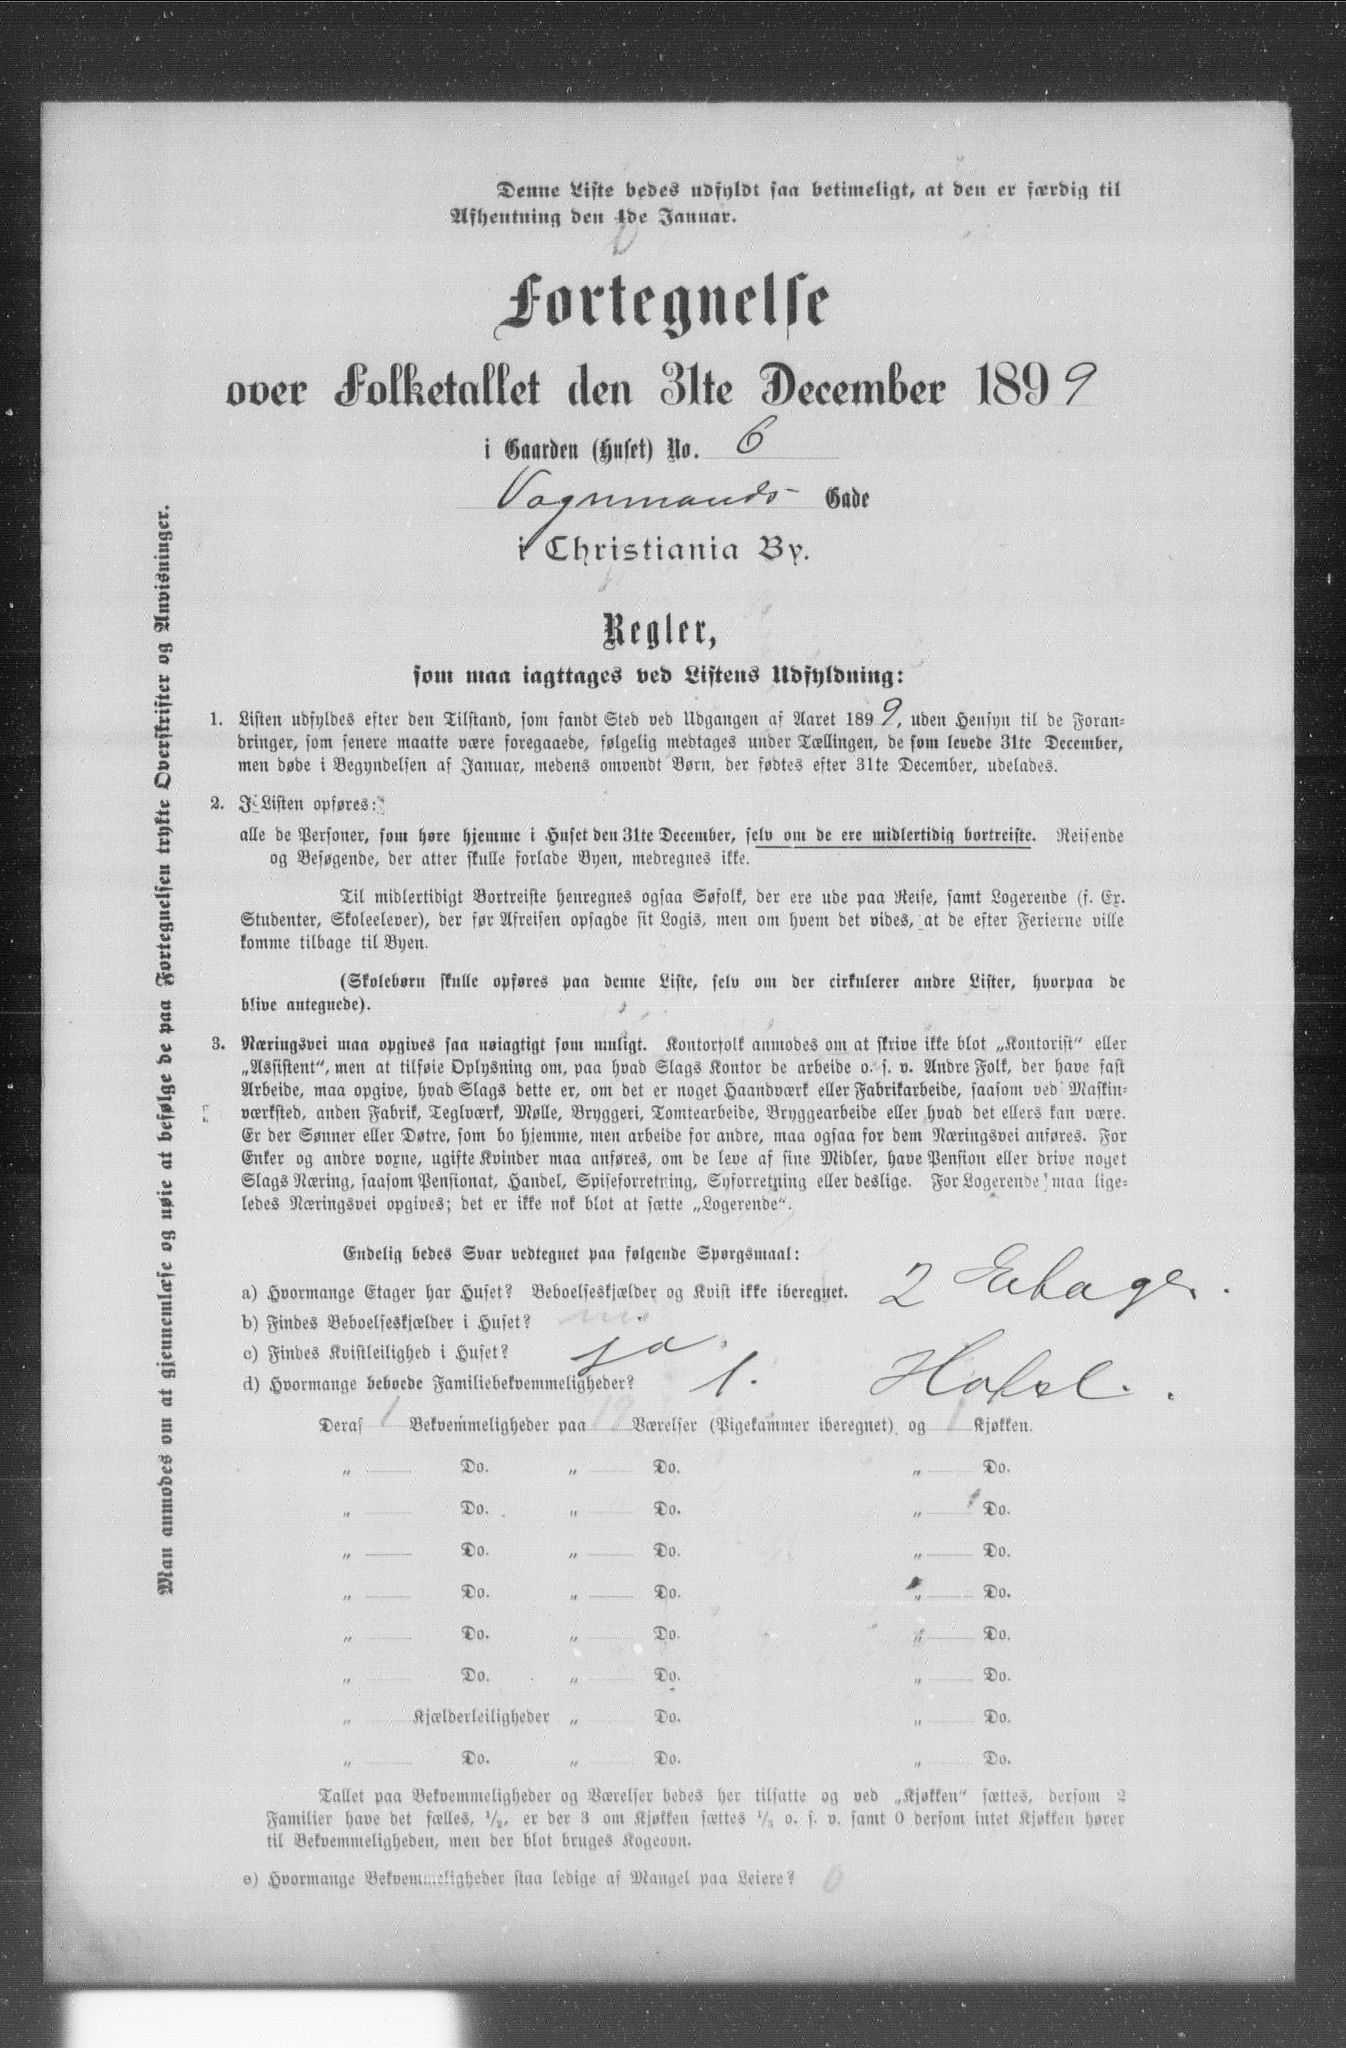 Denne Liste bedes udfyldt saa betimeligt, at den er færdig til
Afhentning den 4de Januar.
Fortegnelse
over Folketallet den 31te December 1899
i Gaarden (Huset) No. 6
Vognmands- Gade
i Christiania By.
Regler,
som maa iagttages ved Listens Udfyldning:
1. Listen udfyldes efter den Tilstand, som fandt Sted ved Udgangen af Aaret 1899, uden Hensyn til de Foran-
dringer, som senere maatte være foregaaede, følgelig medtages under Tællingen, de som levede 31te December,
men døde i Begyndelsen af Januar, medens omvendt Børn, der fødtes efter 31te December, udelades.
2. I Listen opføres:
alle de Personer, som høre hjemme i Huset den 31te December, selv om de ere midlertidig bortreiste. Reisende
og Besøgende, der atter skulle forlade Byen, medregnes ikke.
Til midlertidigt Bortreiste henregnes ogsaa Søfolk, der ere ude paa Reise, samt Logerende (f. Ex.
Studenter, Skoleelever), der før Afreisen opsagde sit Logis, men om hvem det vides, at de efter Ferierne ville
komme tilbage til Byen.
(Skolebørn skulle opføres paa denne Liste, selv om der cirkulerer andre Lister, hvorpaa de
blive antegnede).
3. Næringsvei maa opgives saa nøiagtigt som muligt. Kontorfolk anmodes om at skrive ikke blot „Kontorist“ eller
„Assistent“, men at tilføie Oplysning om, paa hvad Slags Kontor de arbeide o. s. v. Andre Folk, der have fast
Arbeide, maa opgive, hvad Slags dette er, om det er noget Haandværk eller Fabrikarbeide, saasom ved Maskin-
værksted, anden Fabrik, Teglværk, Mølle, Bryggeri, Tomtearbeide, Bryggearbeide eller hvad det ellers kan være.
Er der Sønner eller Døtre, som bo hjemme, men arbeide for andre, maa ogsaa for dem Næringsvei anføres. For
Enker og andre voxne, ugifte Kvinder maa anføres, om de leve af sine Midler, have Pension eller drive noget
Slags Næring, saasom Pensionat, Handel, Spiseforretning, Syforretning eller deslige. For Logerende maa lige-
ledes Næringsvei opgives; det er ikke nok blot at sætte „Logerende“.
Endelig bedes Svar vedtegnet paa følgende Spørgsmaal:
a) Hvormange Etager har Huset? Beboelseskjælder og Kvist ikke iberegnet. 2 Etage.
b) Findes Beboelseskjælder i Huset?
c) Findes Kvistleilighed i Huset? ja
d) Hvormange beboede Familiebekvemmeligheder? 1. Hotel.
Deraf 1 Bekvemmeligheder paa 19 Værelser (Pigekammer iberegnet) og 1 Kjøkken.
„ Do. „ Do. „ Do.
„ Do. „ Do. „ Do.
„ Do. „ Do. „ Do.
„ Do. „ Do. „ Do.
„ Do. „ Do. „ Do.
„ Do. „ Do. „ Do.
„ Kjælderleiligheder „ Do. „ Do.
„ Do. „ Do. „ Do.
Tallet paa Bekvemmeligheder og Værelser bedes her tilsatte og ved „Kjøkken“ sættes, dersom 2
Familier have det fælles, 1/2, er der 3 om Kjøkken sættes 1/3 o. s. v. samt 0 dersom intet Kjøkken hører
til Bekvemmeligheden, men der blot bruges Kogeovn.
e) Hvormange Bekvemmeligheder staa ledige af Mangel paa Leiere? 0
Man anmodes om at gjennemlæse og nøie at befølge de paa Fortegnelsen trykte Overskrifter og Anvisninger.